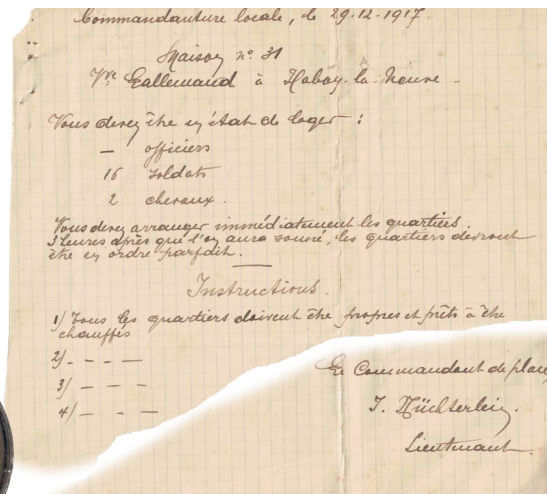 Commandanture locale, le 29.12.1917.
Maison n° 31
Vve Gallemaud à Habay-la-Neuve -
Vous devez être en état de loger :
— officiers
16 soldats
2 chevaux.
Vous devez arranger immédiatement les quartiers.
3 heures après que l'on aura sonné, les quartiers devront
être en ordre parfait.
Instructions.
1/ Tous les quartiers doivent être propres et prêts à être
chauffés
2/ - - - -
3/ - - - -
4/ - - - -
Le Commandant de place,
Lieutenant.